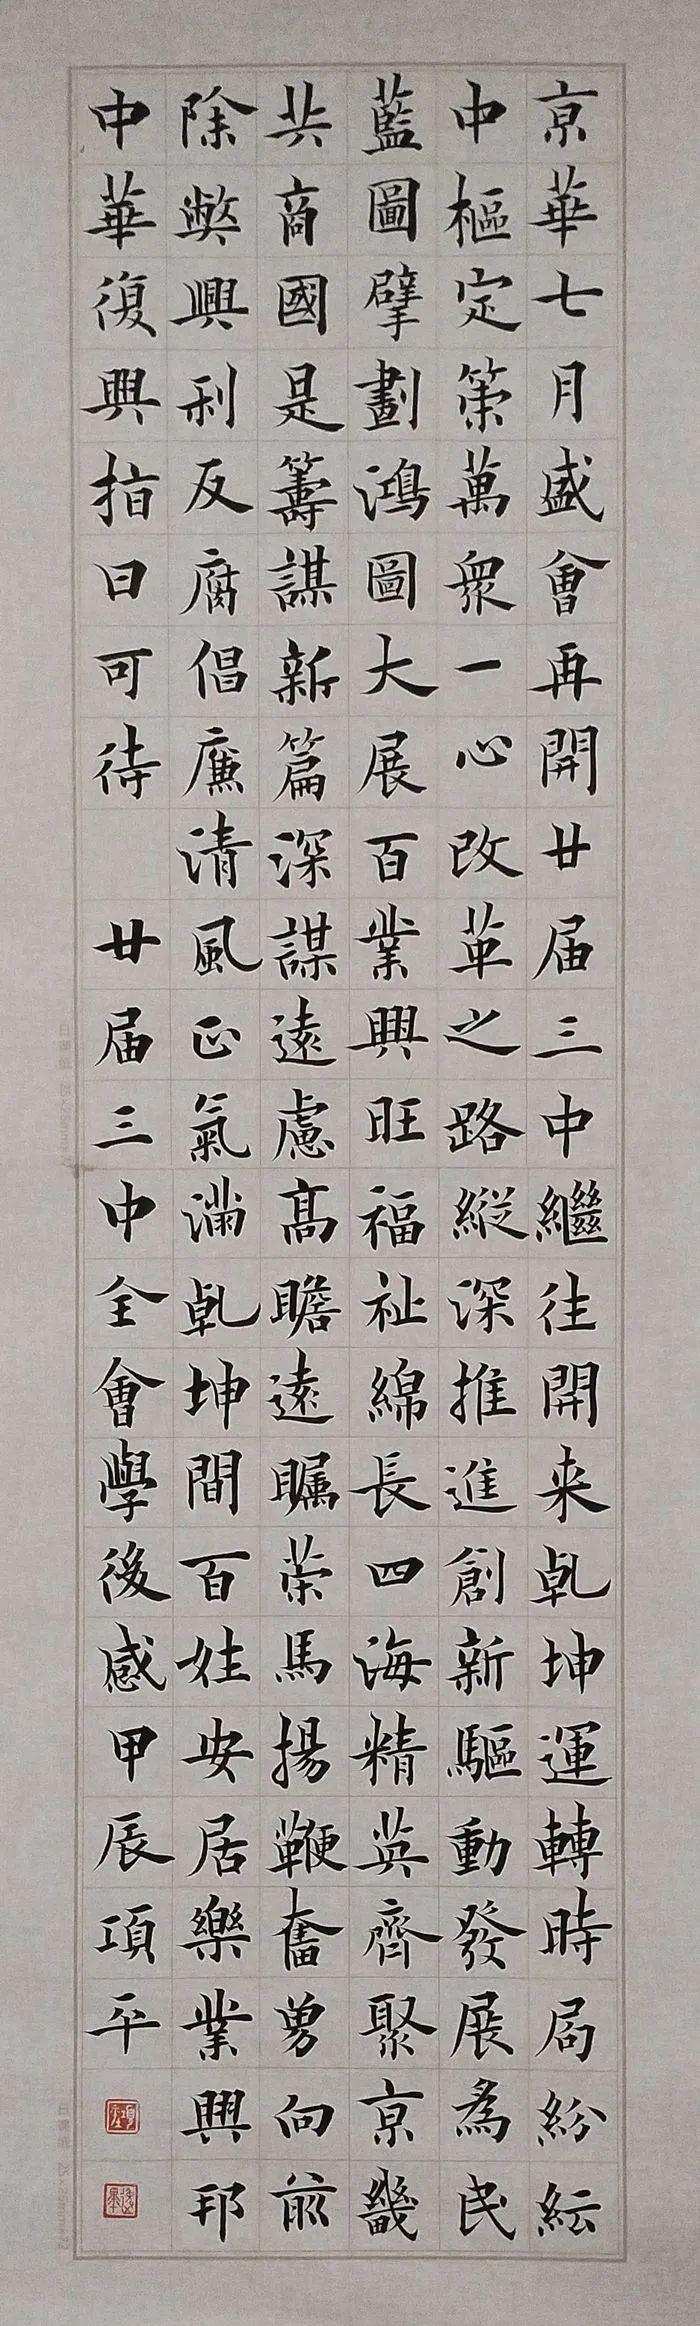 京華七月盛會再開廿届三中繼往開来乹坤運轉時局紛紜
中樞定策萬衆一心改革之路縱深推進創新驅動發展為民
藍圖擘劃鴻圖大展百業興旺福祉綿長四海精英齊聚京畿
共商國是籌謀新篇深謀遠慮髙瞻遠矚策馬揚鞭奮勇向前
除弊興利反腐倡廉清風正氣滿乹坤間百姓安居樂業興邦
中華復興指日可待 廿届三中全會學後感甲辰項平